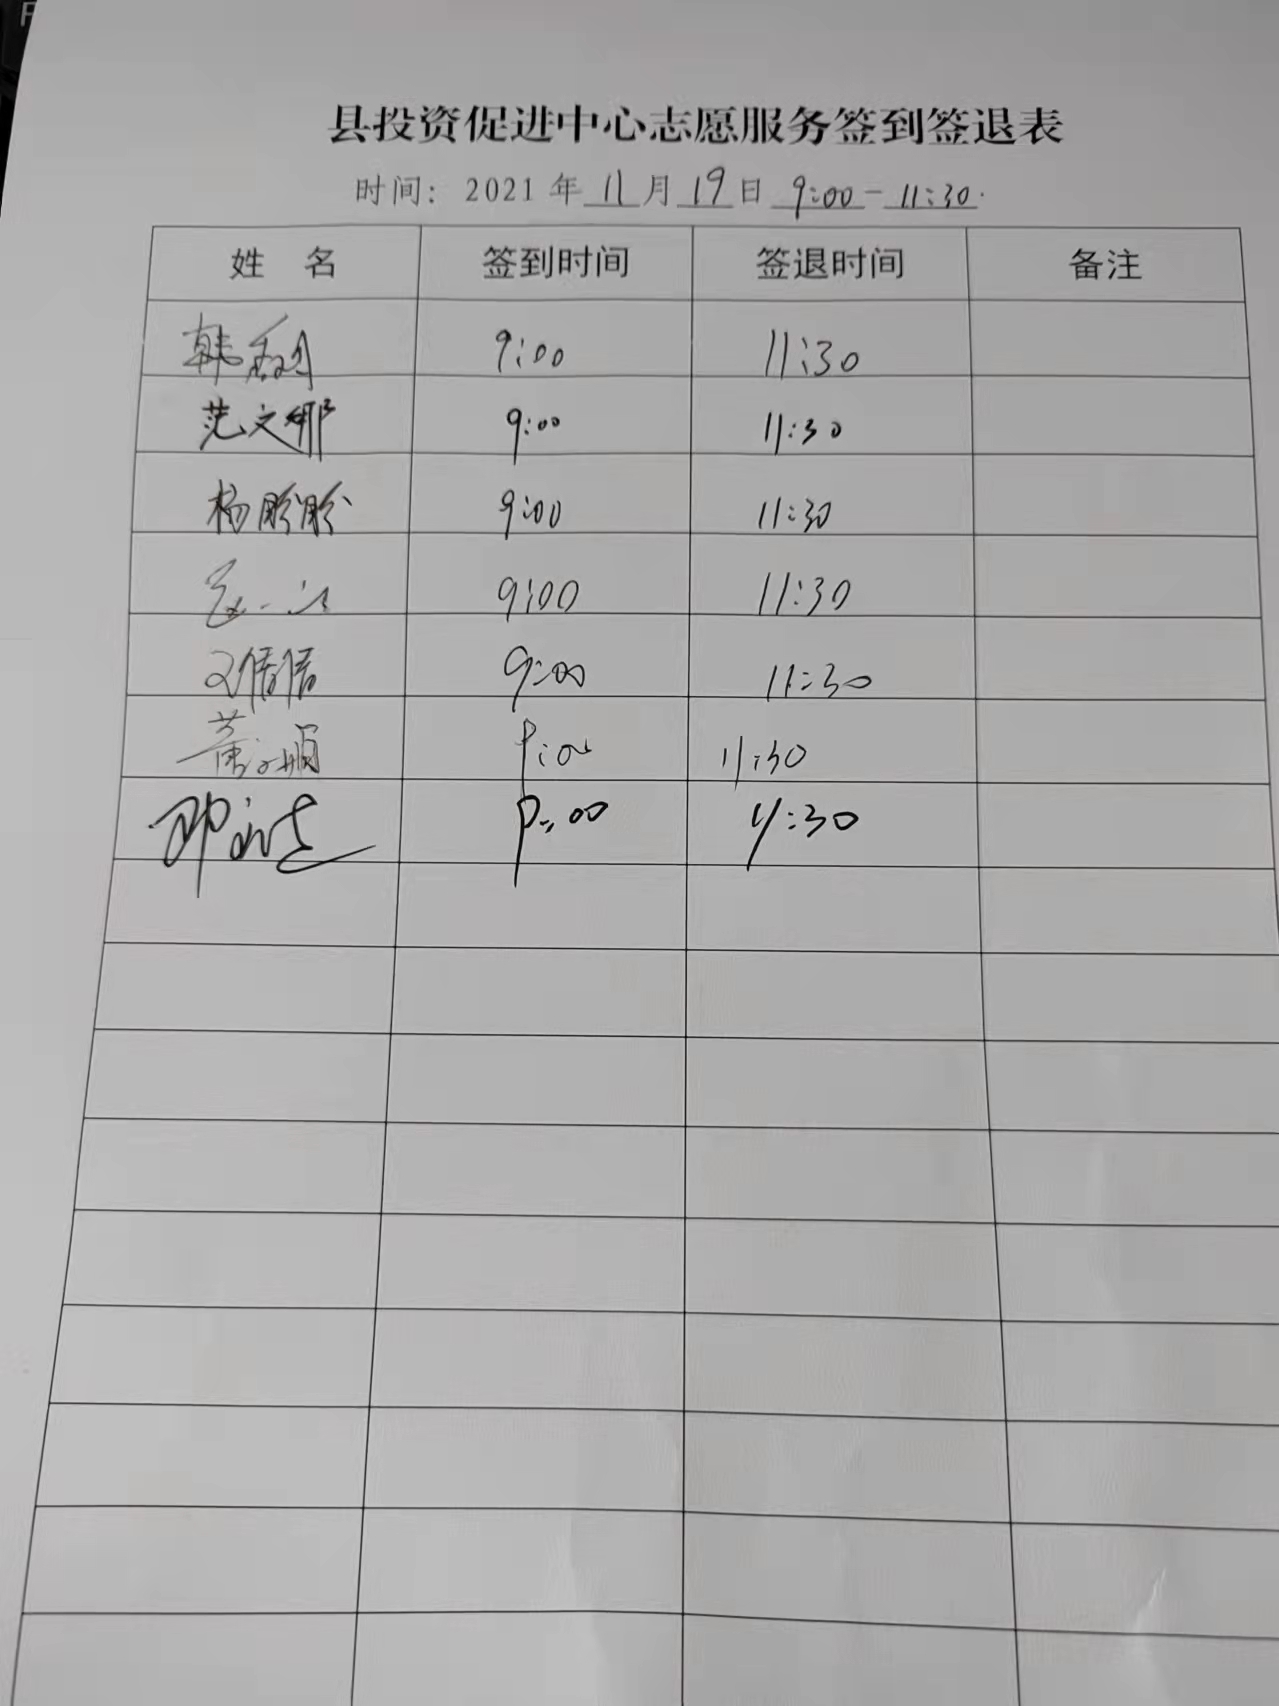 县投资促进中心志愿服务签到签退表
时间：2021年11月19日 9:00-11:30.
姓 名 签到时间 签退时间 备注
韩 9:00 11:30
范文娜 9:00 11:30
杨盼盼 9:00 11:30
9:00 11:30
刘倩倩 9:00 11:30
董 9:00 11:30
邵 9:00 11:30